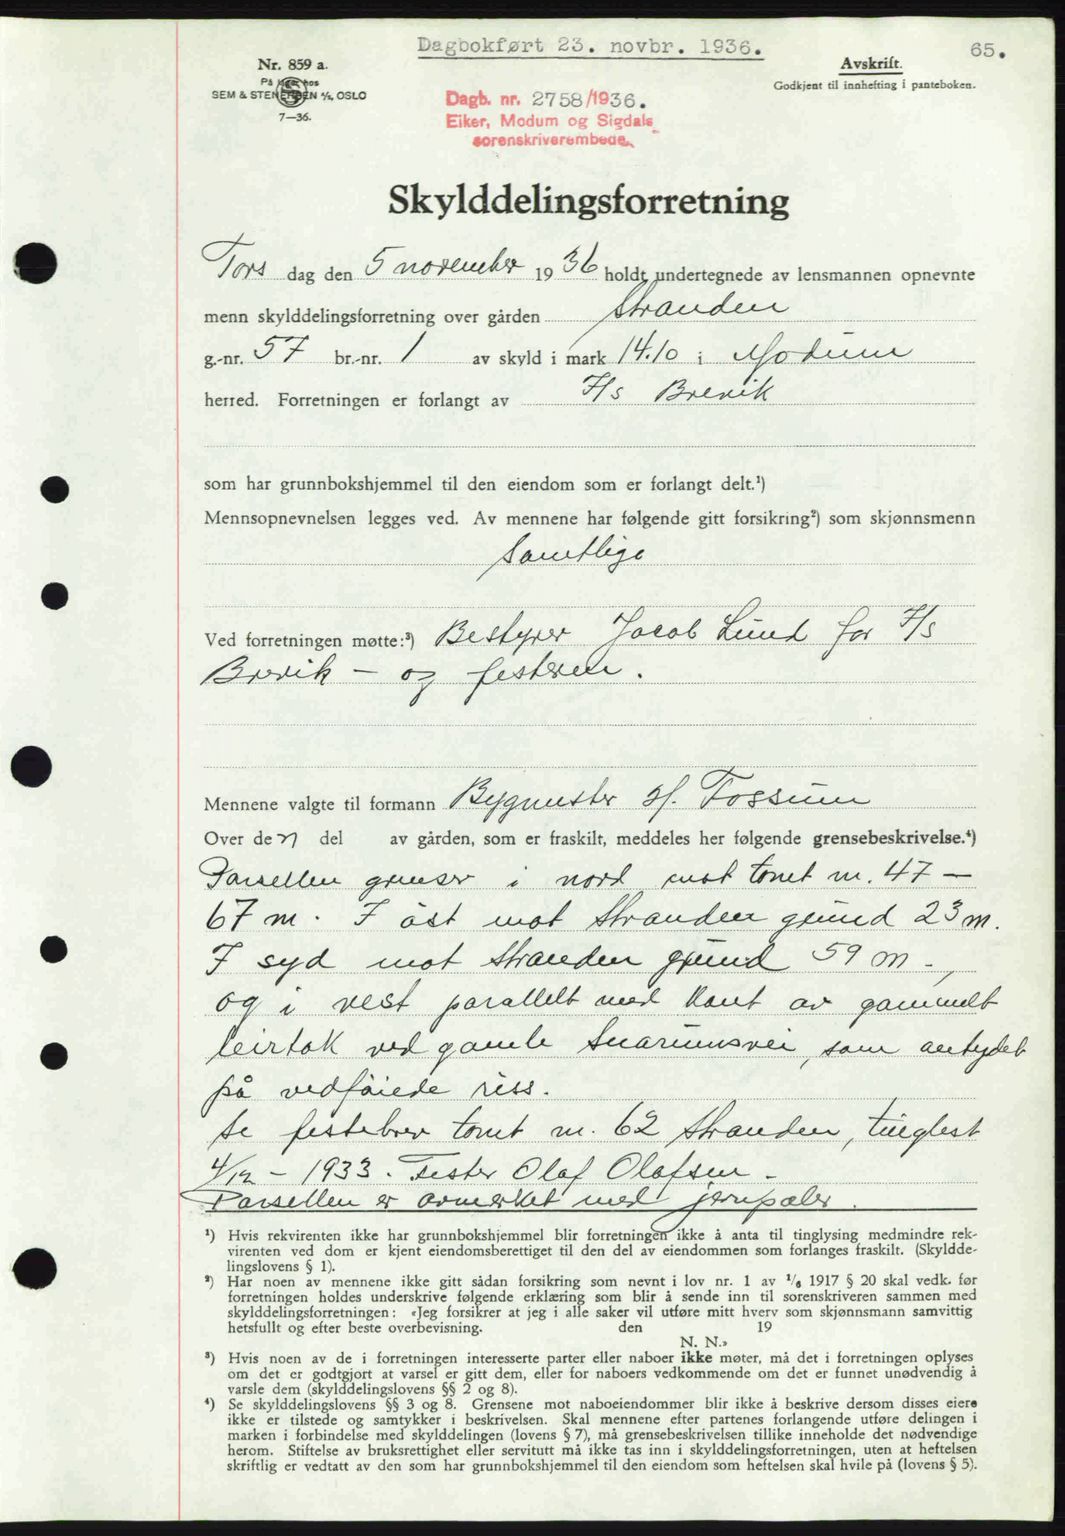 Dagbokført 23. novbr. 1936.
65.
Nr. 859 a.
På lager hos
SEM & STENERSEN A/S, OSLO
7—36.
Avskrift.
Godkjent til innhefting i panteboken.
Dagb. nr. 2758/1936.
Eiker, Modum og Sigdals
sorenskriverembede.
Skylddelingsforretning
Tors dag den 5 november 1936 holdt undertegnede av lensmannen opnevnte
menn skylddelingsforretning over gården Stranden
g.-nr. 57 br.-nr. 1 av skyld i mark 14.10 i Modum
herred. Forretningen er forlangt av I/s Brevik
som har grunnbokshjemmel til den eiendom som er forlangt delt.¹)
Mennsopnevnelsen legges ved. Av mennene har følgende gitt forsikring²) som skjønnsmenn
Samtlige
Ved forretningen møtte:³) Bestyrer Jacob Lund for I/s
Brevik — og festeren.
Mennene valgte til formann Bygmester H. Fossum
Over den del av gården, som er fraskilt, meddeles her følgende grensebeskrivelse.⁴)
Parsellen grenser i nord mot tomt nr. 47 —
67 m. I øst mot Stranden grund 23 m.
I syd mot Stranden grund 59 m.,
og i vest parallelt med kant av gammelt
leirtak ved gamle Snarumsvei, som antydet
på vedføiede riss.
Se festebrev tomt nr. 62 Stranden, tinglest
4/12 — 1933. Fester Olaf Olafsen.
Parsellen er avmerket med jernpæler.
¹) Hvis rekvirenten ikke har grunnbokshjemmel blir forretningen ikke å anta til tinglysing medmindre rek-
virenten ved dom er kjent eiendomsberettiget til den del av eiendommen som forlanges fraskilt. (Skyldde-
lingslovens § 1).
²) Har noen av mennene ikke gitt sådan forsikring som nevnt i lov nr. 1 av 1/6 1917 § 20 skal vedk. før
forretningen holdes underskrive følgende erklæring som blir å sende inn til sorenskriveren sammen med
skylddelingsforretningen: «Jeg forsikrer at jeg i alle saker vil utføre mitt hverv som skjønnsmann samvittig
hetsfullt og efter beste overbevisning. den 19
N. N.»
³) Hvis noen av de i forretningen interesserte parter eller naboer ikke møter, må det i forretningen oplyses
om det er godtgjort at varsel er gitt dem, eller for naboers vedkommende om det er funnet unødvendig å
varsle dem (skylddelingslovens §§ 2 og 8).
⁴) Se skylddelingslovens §§ 3 og 8. Grensene mot naboeiendommer blir ikke å beskrive dersom disses eiere
ikke er tilstede og samtykker i beskrivelsen. Skal mennene efter partenes forlangende utføre delingen i
marken i forbindelse med skylddelingen (lovens § 7), må grensebeskrivelsen tillike inneholde det nødvendige
herom. Stiftelse av bruksrettighet eller servitutt må ikke tas inn i skylddelingsforretningen, uten at heftelsen
skriftlig er vedtatt av den som har grunnbokshjemmel til den eiendom som heftelsen skal hvile på (lovens § 5).